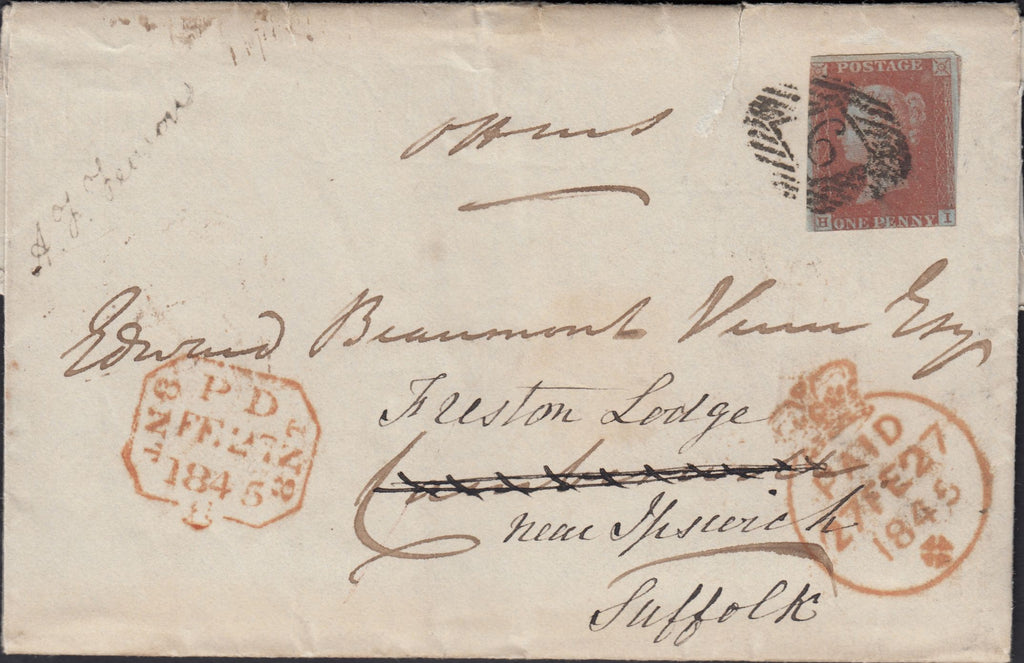 OHMS
POSTAGE
6
H ONE PENNY I
Edward Beaumont Venn Esq
Freston Lodge
near Ipswich
Suffolk
PD
FE 27
1845
PAID
27 FE 27
1845